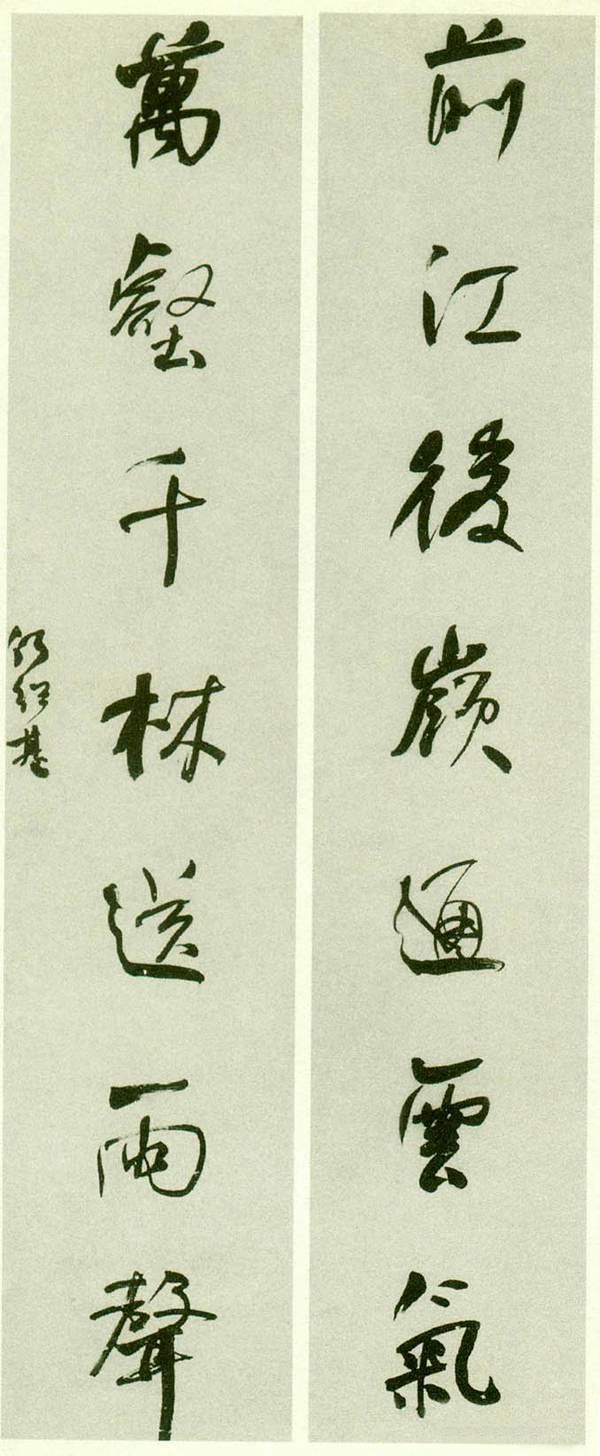 前江後嶺通雲氣
萬壑千林送雨聲
祁紹基